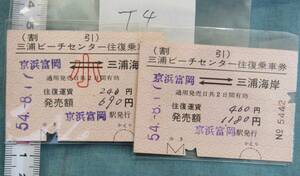 T4
(割 引)
三浦ビーチセンター往復乗
京浜富岡 三浦海岸
通用発売日共2日間有効
小
往復運賃 240円
発売額 690円
京浜富岡 駅発行
54.-8.17
(割 引)
三浦ビーチセンター往復乗車券
京浜富岡 三浦海岸
通用発売日共2日間有効
往復運賃 460円
発売額 1180円
京浜富岡 駅発行
54.-8.17
No 5442
M